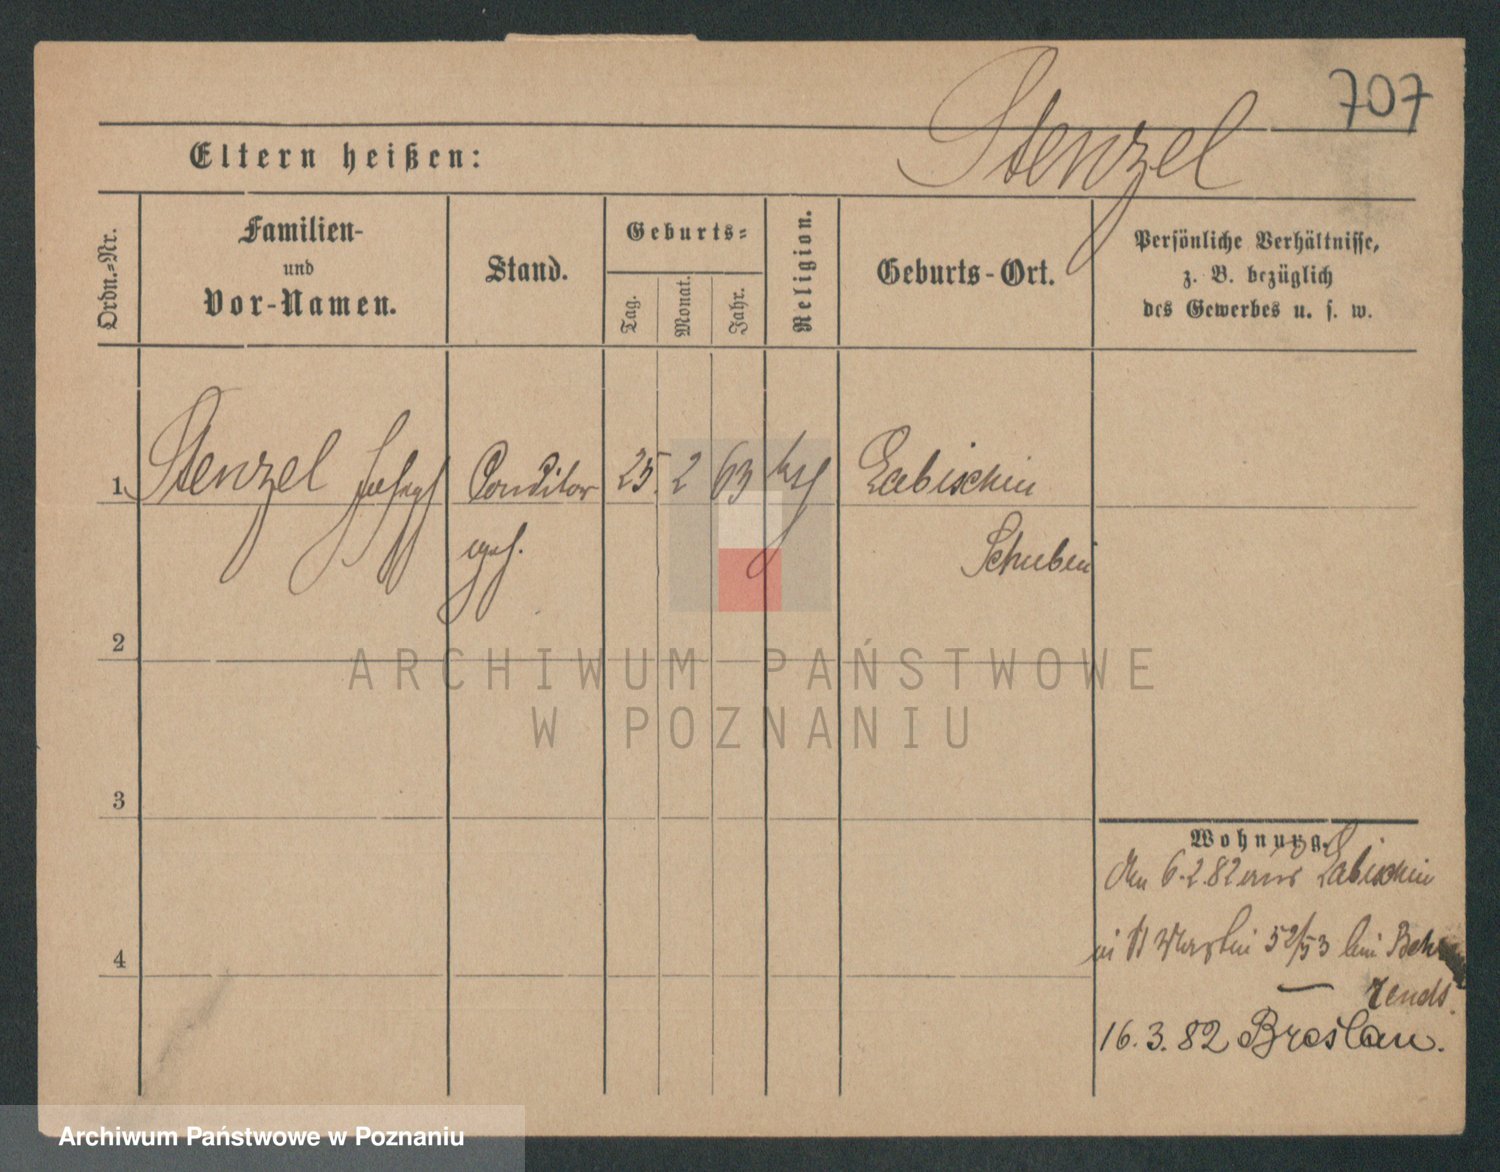 707
Stenzel
Eltern heißen:
Ordn.=Nr.
Familien-
und
Vor-Namen.
Stand.
Geburts=
Tag.
Monat.
Jahr.
Religion.
Geburts-Ort.
Persönliche Verhältnisse,
z. B. bezüglich
des Gewerbes u. s. w.
1 Stenzel Joseph Conditor 25. 2 63 kth Labischin
geh. Schubin
2
3
4
Wohnung.
den 6.2.82 aus Labischin
in St Martin 52/53 bei Beh
rends.
16.3.82 Breslau.
ARCHIWUM PAŃSTWOWE
W POZNANIU
Archiwum Państwowe w Poznaniu